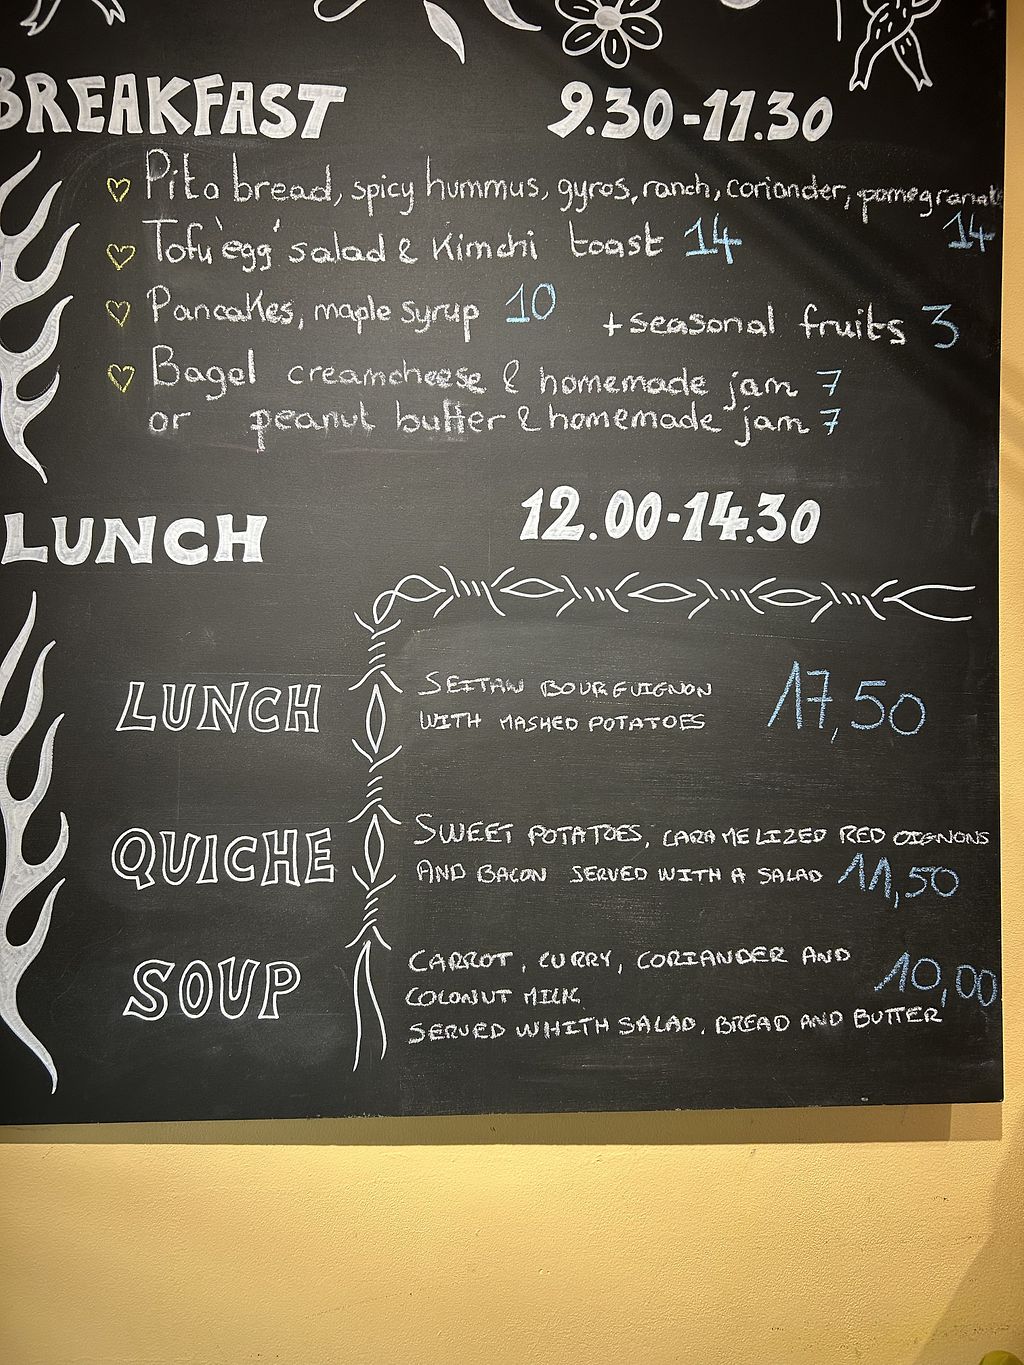 BREAKFAST 9.30-11.30
Pita bread, spicy hummus, gyros, ranch, coriander, pomegranate
14
Tofu 'egg' salad & Kimchi toast 14
Pancakes, maple syrup 10 + seasonal fruits 3
Bagel creamcheese & homemade jam 7
or peanut butter & homemade jam 7
LUNCH 12.00-14.30
LUNCH
SEITAN BOURGUIGNON
WITH MASHED POTATOES
17,50
QUICHE
SWEET POTATOES, CARAMELIZED RED OIGNONS
AND BACON SERVED WITH A SALAD 11,50
SOUP
CARROT, CURRY, CORIANDER AND
COCONUT MILK
10,00
SERVED WHITH SALAD, BREAD AND BUTTER